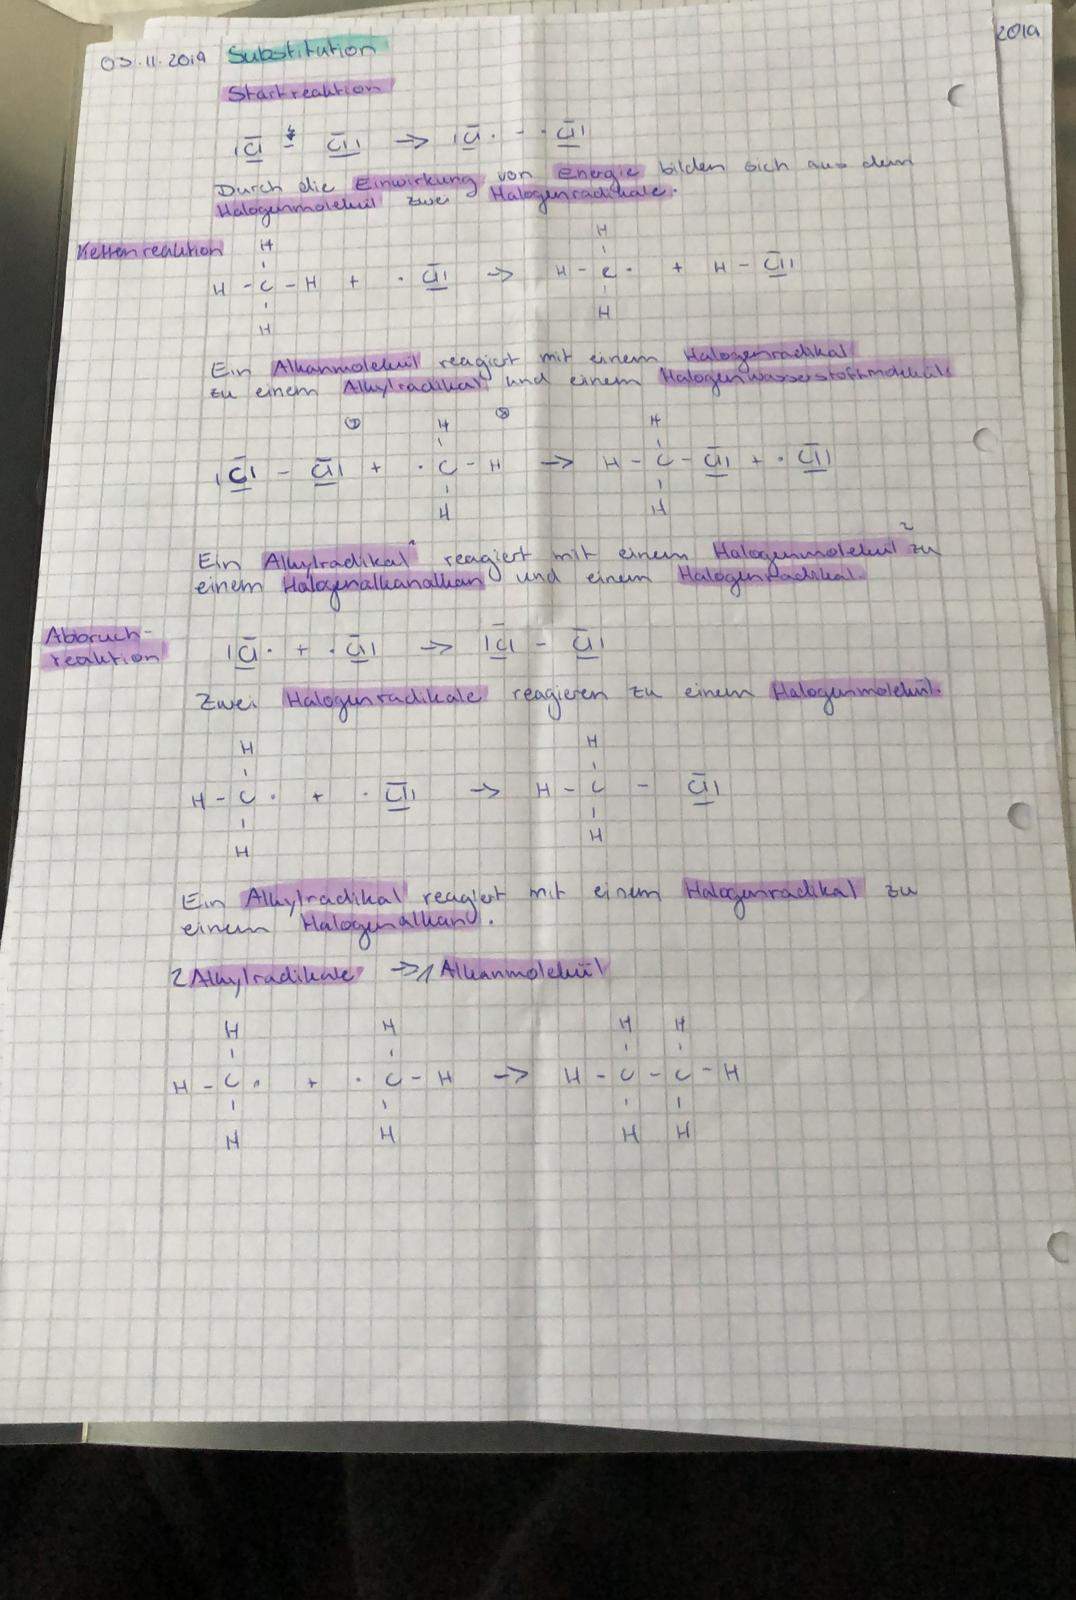 03.11.2019 Substitution
2019
Startreaktion
|Cl - Cl| → |Cl· - ·Cl|
Durch die Einwirkung von Energie bilden sich aus dem
Halogenmolekül zwei Halogenradikale.
Kettenreaktion
H H
H - C - H + ·Cl| → H - C · + H - Cl|
H H
Ein Alkanmolekül reagiert mit einem Halogenradikal
zu einem Alkylradikal und einem Halogenwasserstoffmolekül.
H H
|Cl| - Cl| + ·C - H → H - C - Cl| + ·Cl|
H H
Ein Alkylradikal reagiert mit einem Halogenmolekül zu
einem Halogenalkanalkan und einem Halogenradikal.
Abbruch-
reaktion
|Cl· + ·Cl| → |Cl - Cl|
Zwei Halogenradikale reagieren zu einem Halogenmolekül.
H H
H - C · + ·Cl| → H - C - Cl|
H H
Ein Alkylradikal reagiert mit einem Halogenradikal zu
einem Halogenalkan.
2 Alkylradikale → 1 Alkanmolekül
H H H H
H - C · + ·C - H → H - C - C - H
H H H H